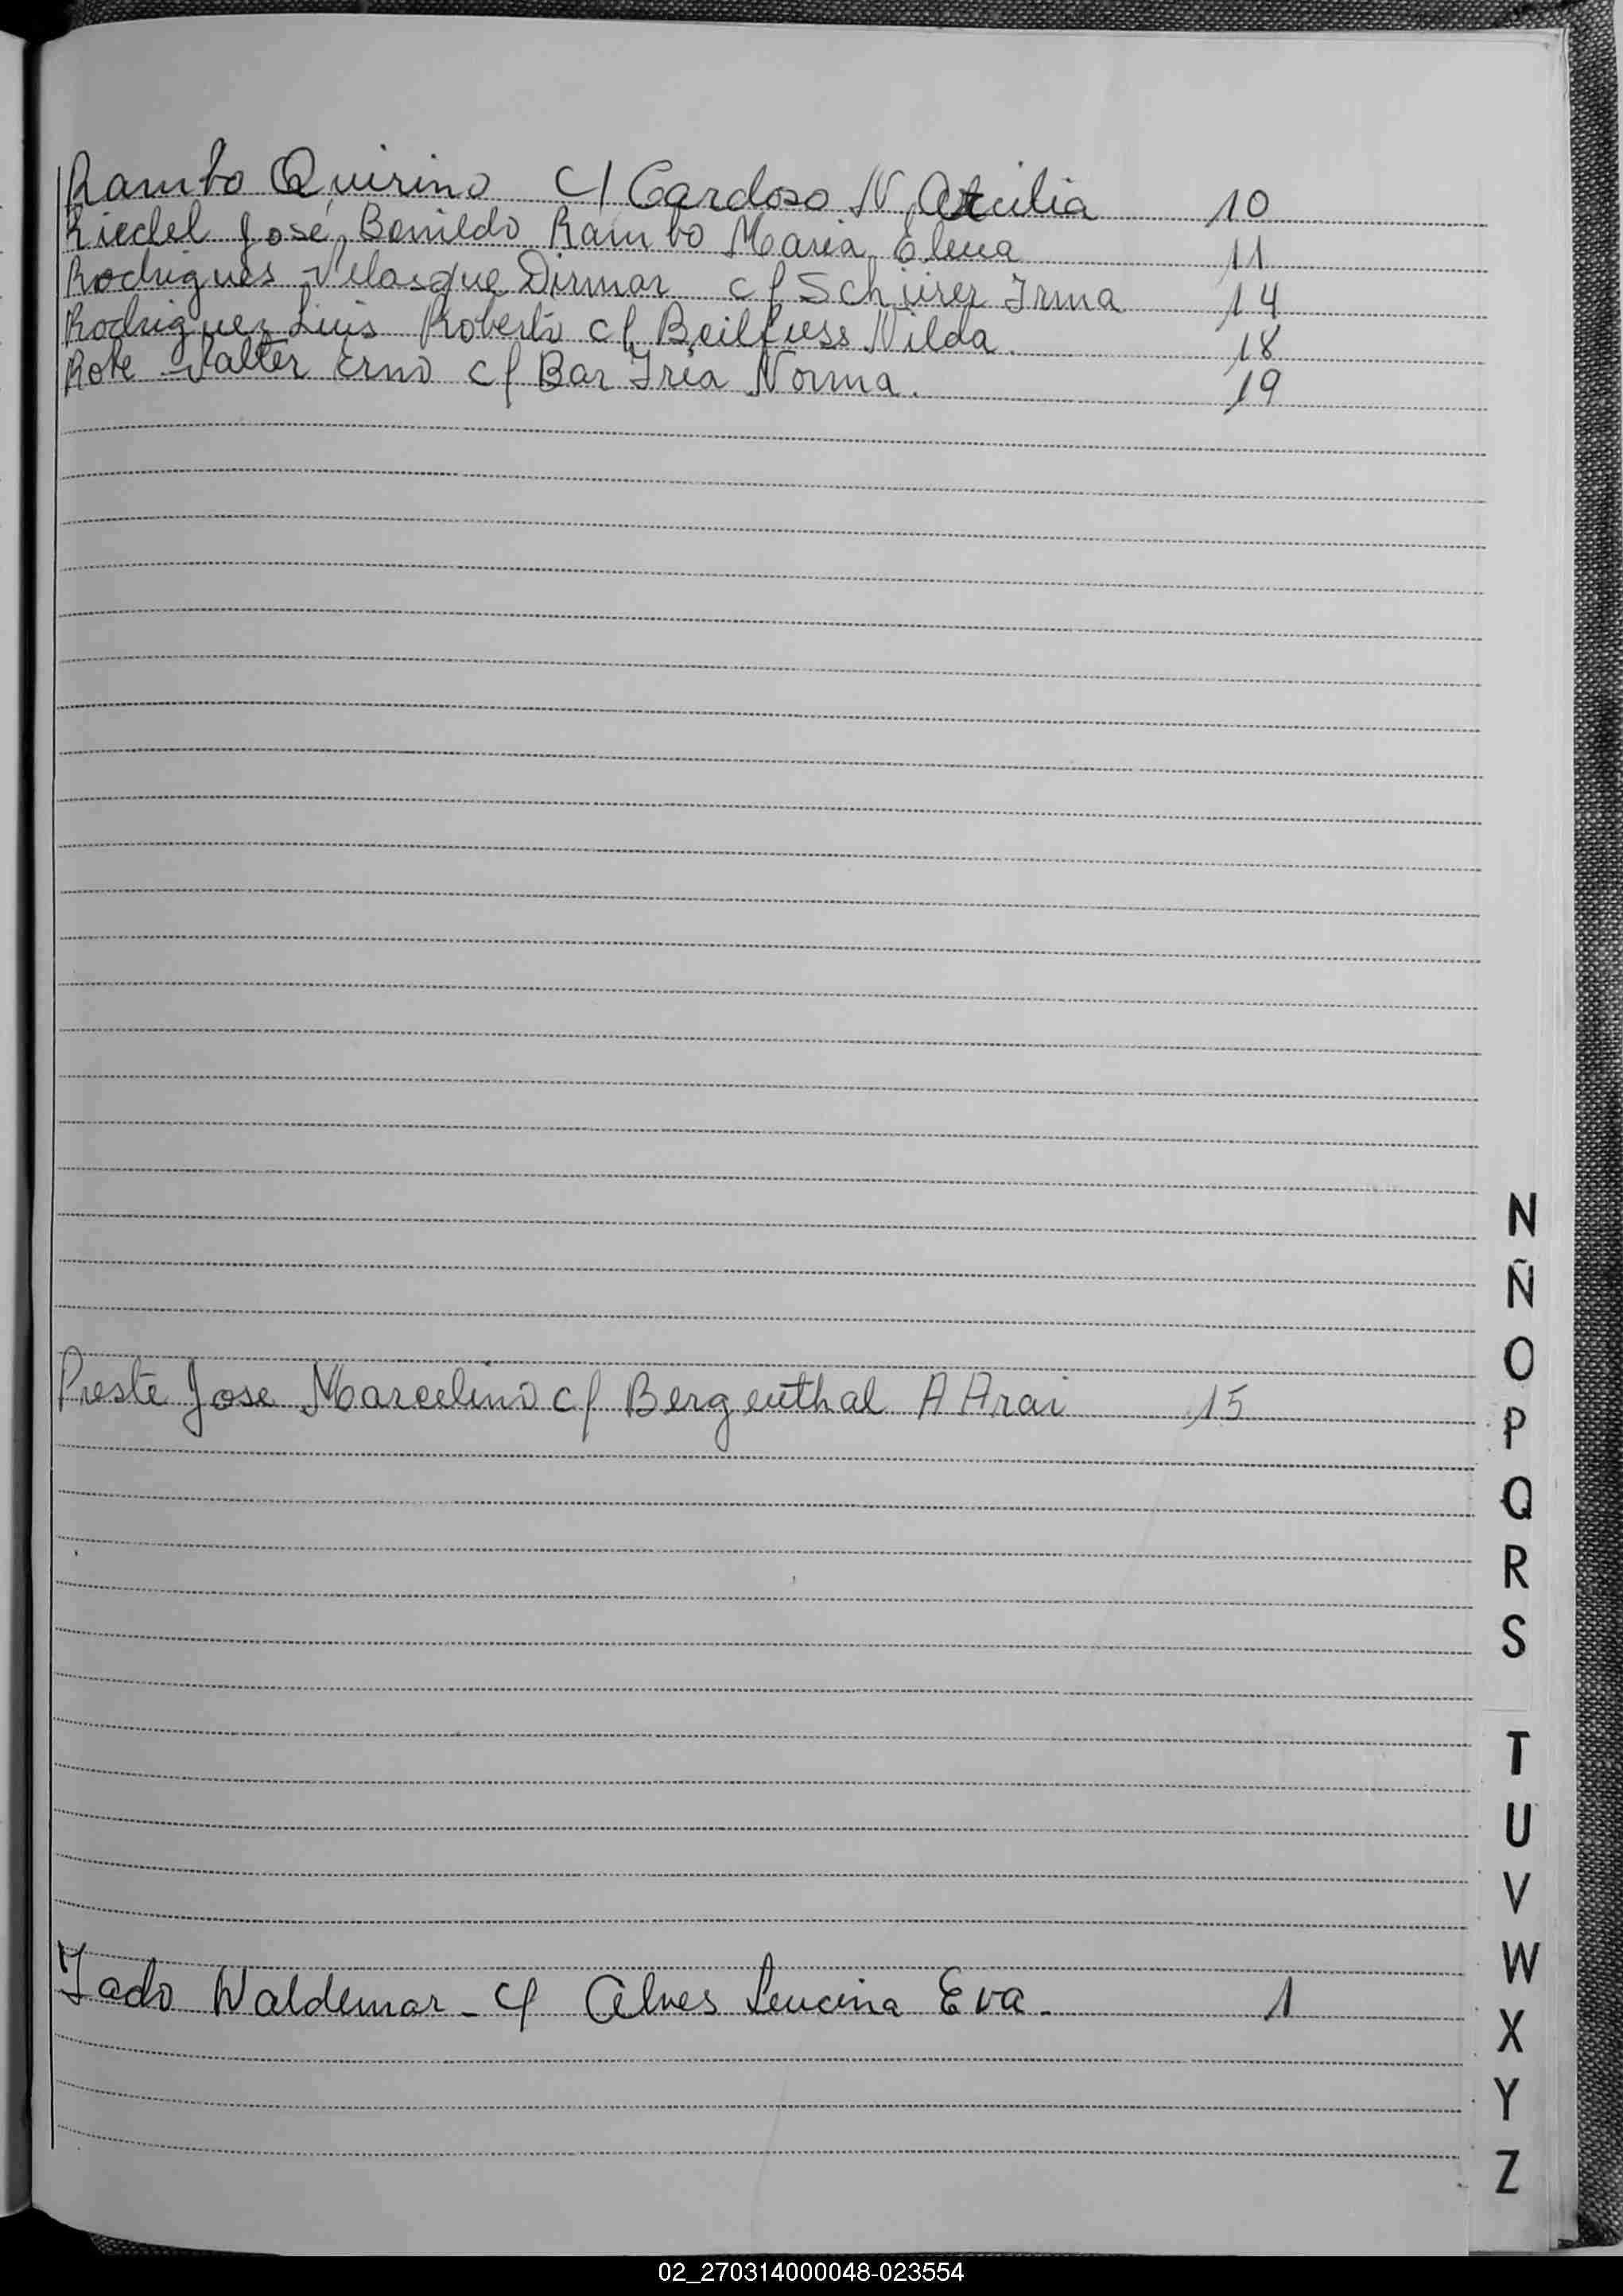 Rambo Quirino c/ Cardoso N. Atcilia 10
Riedel José, Bonildo Rambo Maria Elena 11
Rodrigues Velasque Dirmar c/ Schürer Irma 14
Rodriguez Luis Roberto c/ Beilfuss Nilda. 18
Rote Valter Erno c/ Bar Iria Norma. 19
N
Ñ
O
Preste Jose Marcelino c/ Bergenthal A Arai 15
P
Q
R
S
T
U
V
W
Tado Waldemar - c/ Alves Leucina Eva. 1
X
Y
Z
02_270314000048-023554